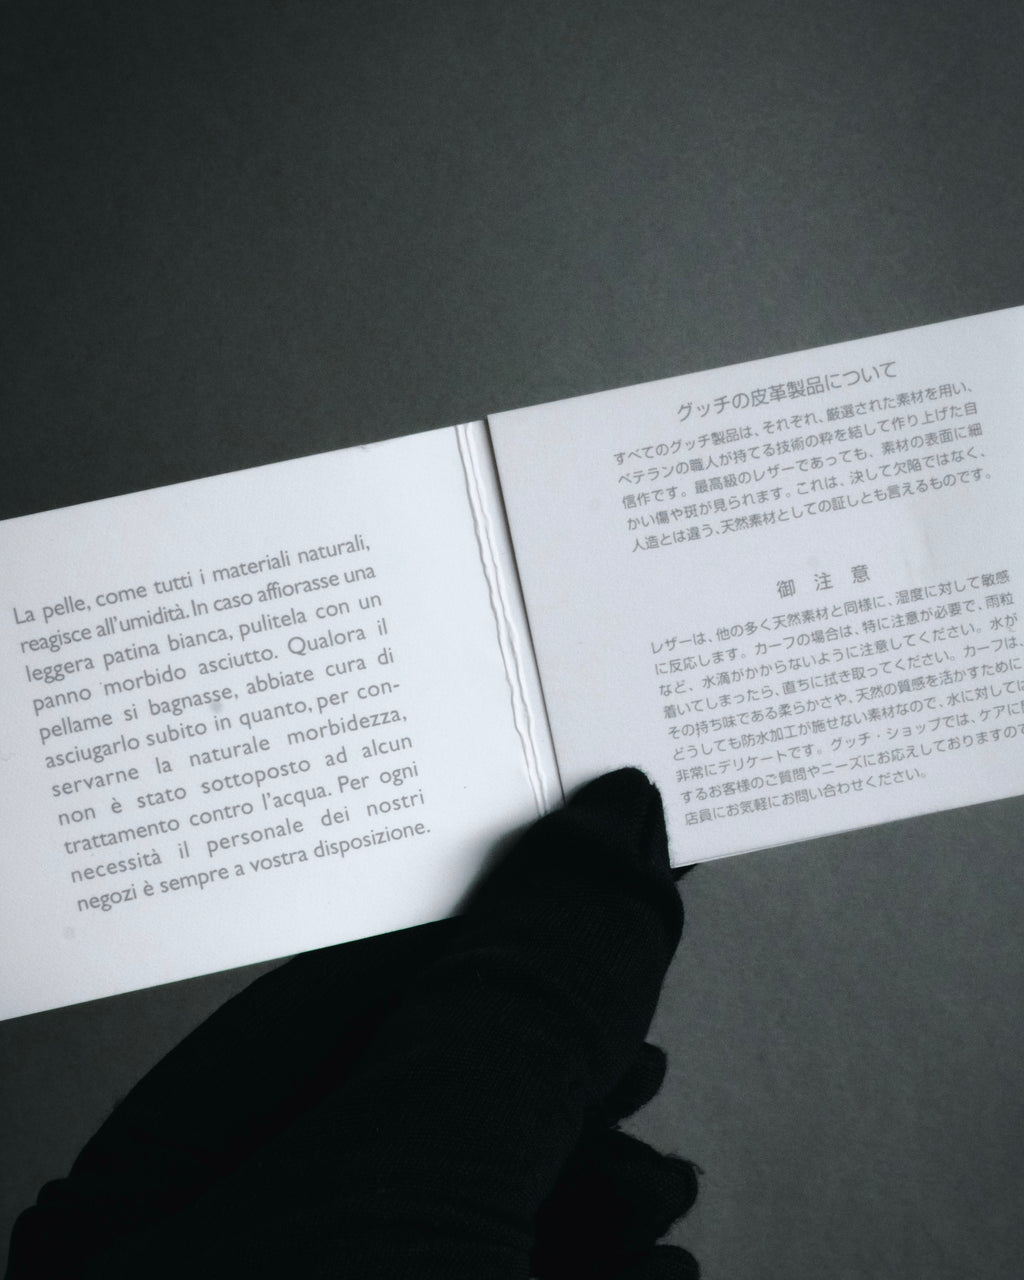 La pelle, come tutti i materiali naturali,
reagisce all'umidità. In caso affiorasse una
leggera patina bianca, pulitela con un
panno morbido asciutto. Qualora il
pellame si bagnasse, abbiate cura di
asciugarlo subito in quanto, per con-
servarne la naturale morbidezza,
non è stato sottoposto ad alcun
trattamento contro l'acqua. Per ogni
necessità il personale dei nostri
negozi è sempre a vostra disposizione.
グッチの皮革製品について
すべてのグッチ製品は、それぞれ、厳選された素材を用い、
ベテランの職人が持てる技術の粋を結して作り上げた自
信作です。最高級のレザーであっても、素材の表面に細
かい傷や斑が見られます。これは、決して欠陥ではなく、
人造とは違う、天然素材としての証しとも言えるものです。
御 注 意
レザーは、他の多く天然素材と同様に、湿度に対して敏感
に反応します。カーフの場合は、特に注意が必要で、雨粒
など、水滴がかからないように注意してください。水が
着いてしまったら、直ちに拭き取ってください。カーフは、
その持ち味である柔らかさや、天然の質感を活かすために
どうしても防水加工が施せない素材なので、水に対しては
非常にデリケートです。グッチ・ショップでは、ケアに
するお客様のご質問やニーズにお応えしておりますので
店員にお気軽にお問い合わせください。